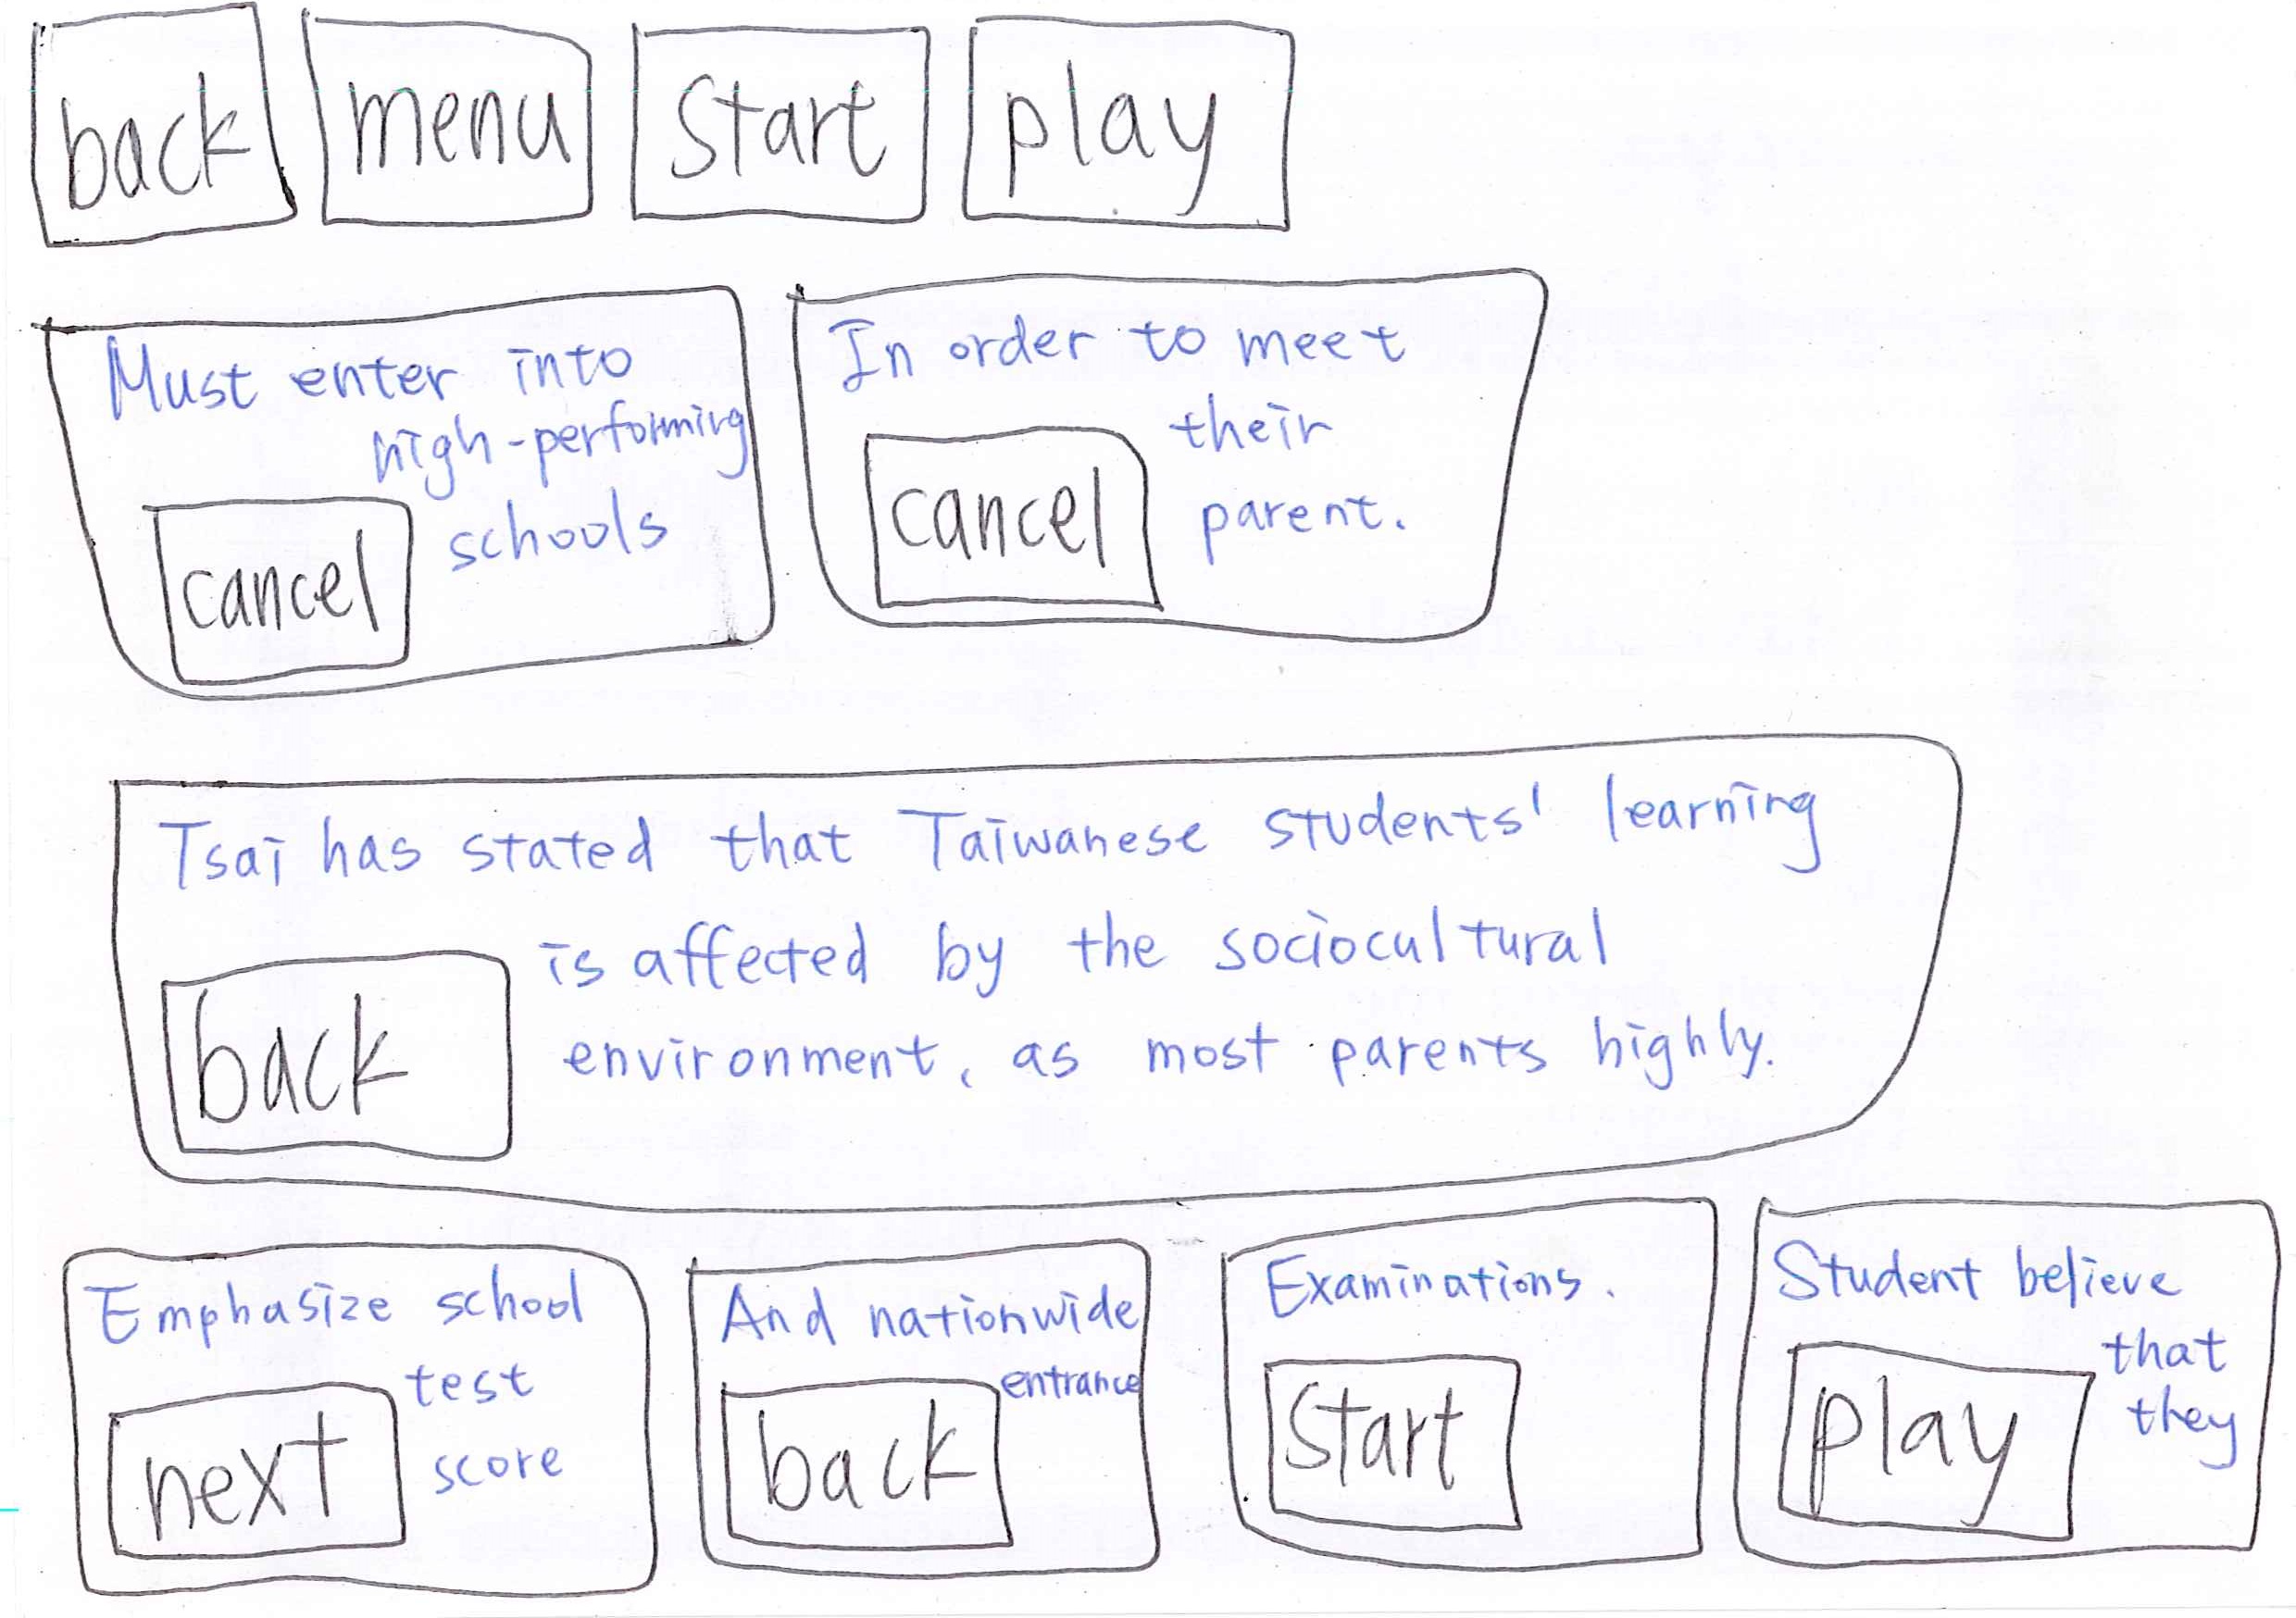 back menu start play
Must enter into
high-performing
schools
cancel
In order to meet
their
parent.
cancel
Tsai has stated that Taiwanese students' learning
is affected by the sociocultural
environment, as most parents highly.
back
Emphasize school
test
score
next
And nationwide
entrance
back
Examinations.
start
Student believe
that
they
play